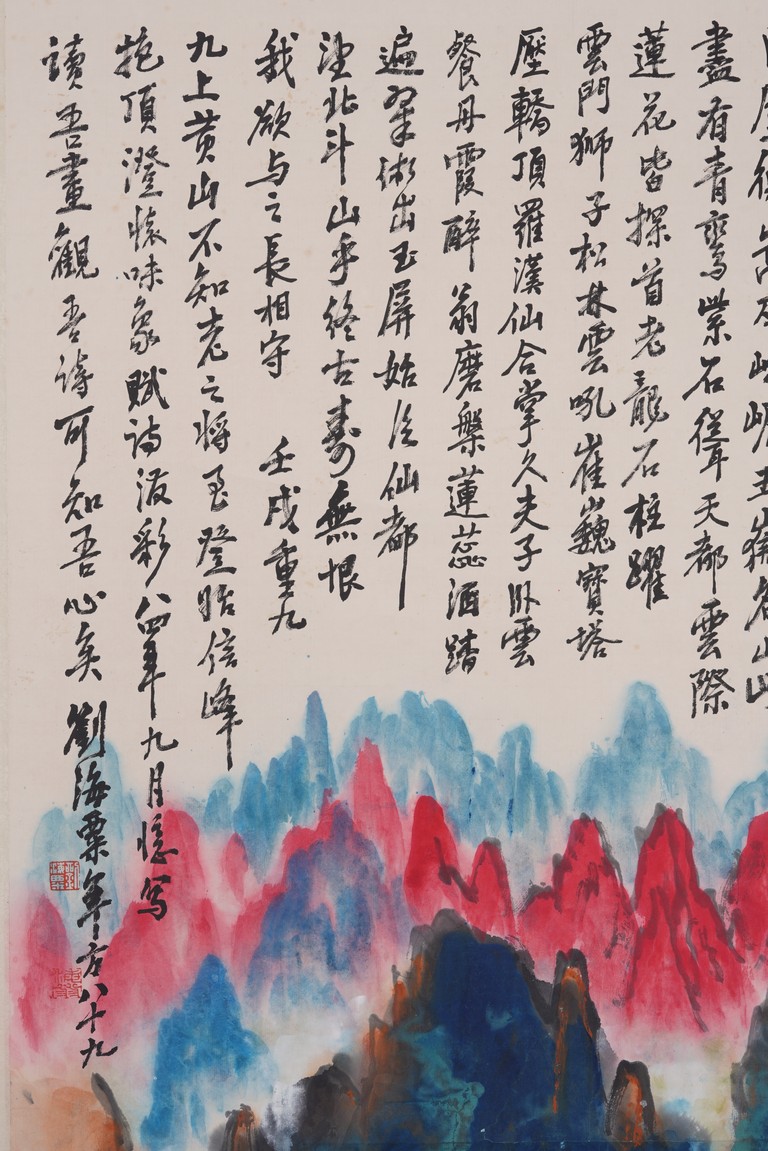 盡有青鸞紫石聳天都雲際
蓮花皆探首老龍石柱躍
雲門獅子松林雲吼崔巍寶塔
壓轎頂羅漢仙合掌久夫子卧雲
餐丹霞醉翁磨槃蓮蕊酒踏
遍翠微出玉屏始信仙都
望北斗山乎終古壽無垠
我欲与之長相守 壬戌重九
九上黄山不知老之將至登始信峰
抱頂澄懷味象賦詩潑彩八四年九月憶寫
讀吾畫觀吾詩可知吾心矣 劉海粟年方八十九